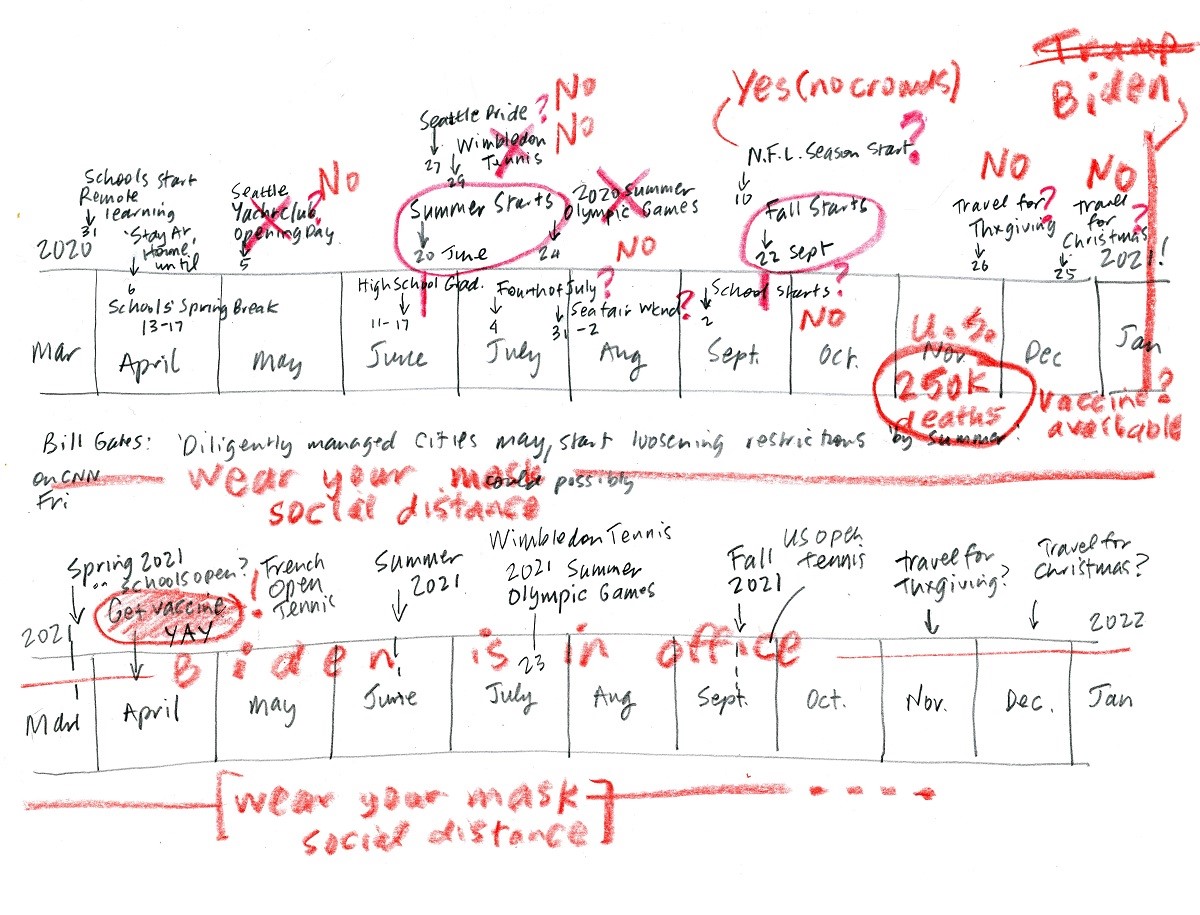 Trump
Biden
Yes (no crowds)
NO
NO
Seattle Pride?
27
Wimbledon
Tennis
29
N.F.L. Season Start?
10
NO
NO
NO
Schools Start
Remote
learning
31
'Stay At
Home'
until
6
Seattle
Yacht Club?
Opening Day
5
Summer Starts
20 June
2020 Summer
Olympic Games
24
NO
Fall Starts
22 Sept
Travel for?
Thxgiving
26
Travel
for?
Christmas
25
2020
2021!
Schools' Spring Break
13-17
High School Grad.
11-17
Fourth of July?
4
Seafair Wknd?
31 -2
School starts?
2
NO
U.S.
250K
deaths
Mar
April
May
June
July
Aug
Sept.
Oct.
Nov.
Dec
Jan
vaccine?
available
Bill Gates: 'Diligently managed cities may, start loosening restrictions 'by summer'
on CNN
Fri
could possibly
wear your mask
social distance
Spring 2021
Schools open?
Get vaccine!
YAY
French
Open
Tennis
Summer
2021
Wimbledon Tennis
2021 Summer
Olympic Games
23
Fall
2021
US open
tennis
travel for
Thxgiving?
Travel for
Christmas?
2021
2022
Biden is in office
1
Mar
April
May
June
July
Aug
Sept.
Oct.
Nov.
Dec.
Jan
[wear your mask
social distance]